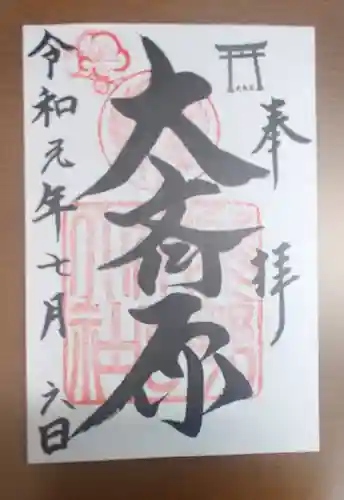 奉拝
大斎原
令和元年七月六日